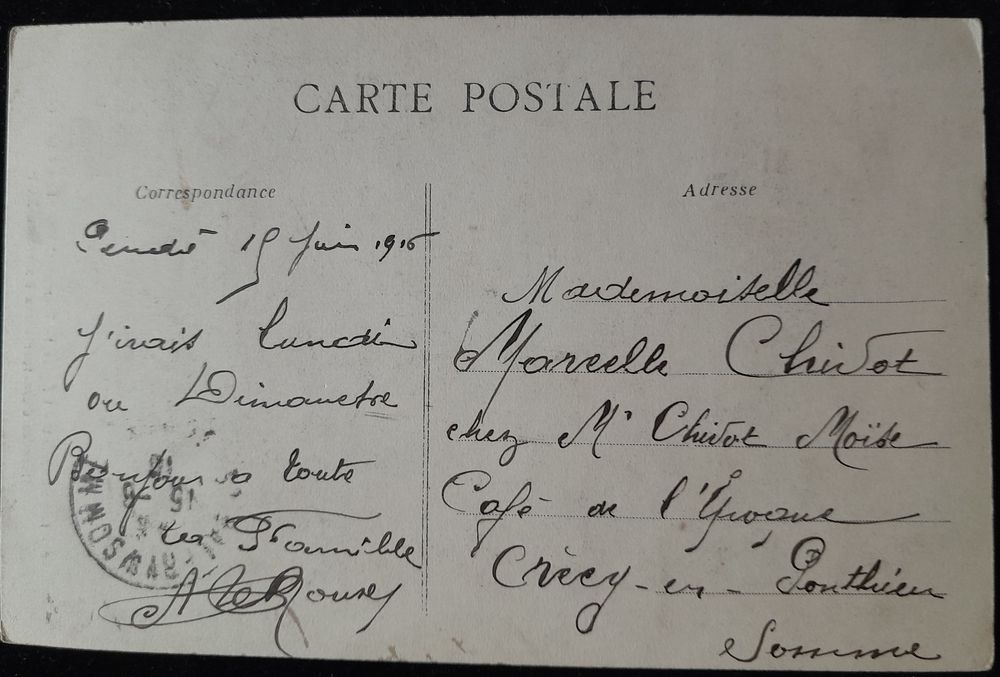 CARTE POSTALE
Correspondance
Adresse
15 Juin 1915
J'irais lundi
ou Dimanche
Bonjour a toute
ta Famille
Mademoiselle
Marcelle Chivot
chez Mr Chivot Moïse
Café de l'
Crécy-en-Ponthieu
Somme
SOMME